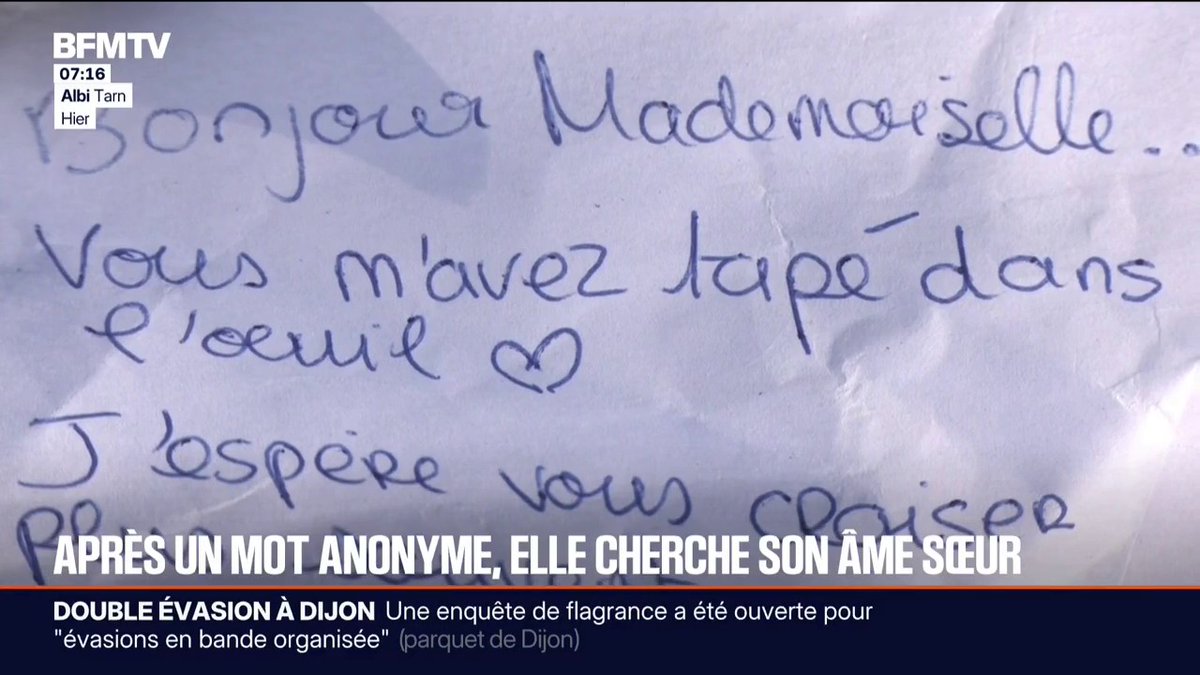 BFMTV
07:16
Albi Tarn
Hier
Bonjour Mademoiselle...
Vous m'avez tapé dans
l'oeuil ♡
J'espère vous croiser
APRÈS UN MOT ANONYME, ELLE CHERCHE SON ÂME SŒUR
DOUBLE ÉVASION À DIJON Une enquête de flagrance a été ouverte pour
"évasions en bande organisée" (parquet de Dijon)